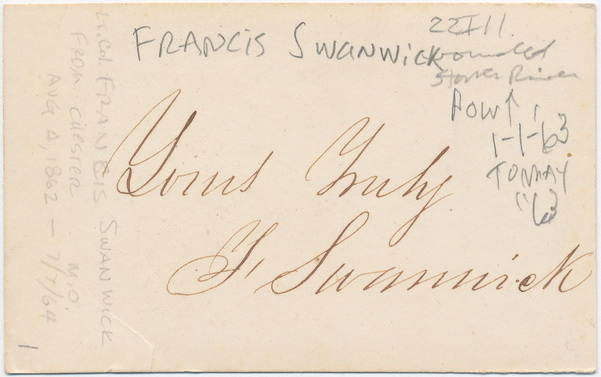 FRANCIS SWANWICK
22 Ill.
wounded
Stones River
POW
1-1-63
TO MAY
'63
Yours Truly
F. Swanwick
Lt. Col. FRANCIS SWANWICK
FROM CHESTER M.O.
AUG 4, 1862 — 7/7/64
1